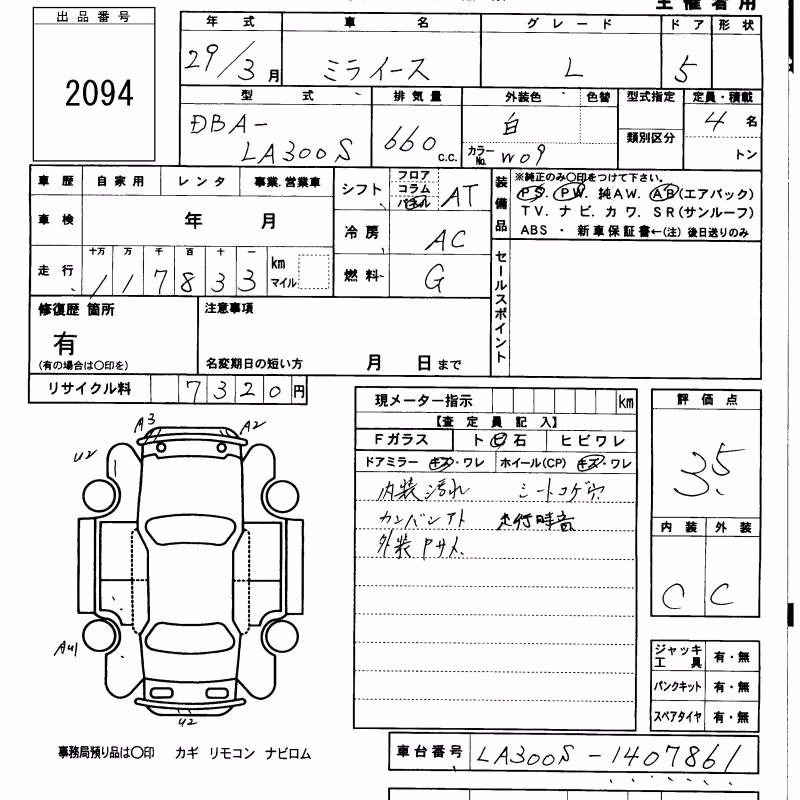 主催者用
出品番号
2094
年式 車名 グレード ドア 形状
29/3月 ミライース L 5
型式 排気量 外装色 色替 型式指定 定員・積載
DBA-
LA300S
660 c.c.
白
カラーNo. W09
類別区分
4名
トン
車歴 自家用 レンタ 事業.営業車
車検 年 月
走行 十万 万 千 百 十 一
117833 km マイル
シフト フロア コラム パネル AT
冷房 AC
燃料 G
装備品
※純正のみ〇印をつけて下さい。
PS. PW. 純AW. AB(エアバック)
TV. ナビ. カワ. SR(サンルーフ)
ABS ・ 新車保証書←(注)後日送りのみ
セールスポイント
修復歴 箇所
有
(有の場合は〇印を)
注意事項
名変期日の短い方 月 日まで
リサイクル料 7320円
現メーター指示 km
【査定員記入】
Fガラス ト ビ 石 ヒビワレ
ドアミラー キズ・ワレ ホイール(CP) キズ・ワレ
内装汚れ シートコゲ穴
カンバンアト 走行時音
外装Pサメ
評価点
3.5
内装 外装
C C
A3 A2
U2
AU1
U2
ジャッキ工具 有・無
パンクキット 有・無
スペアタイヤ 有・無
事務局預り品は〇印 カギ リモコン ナビロム
車台番号 LA300S-1407861